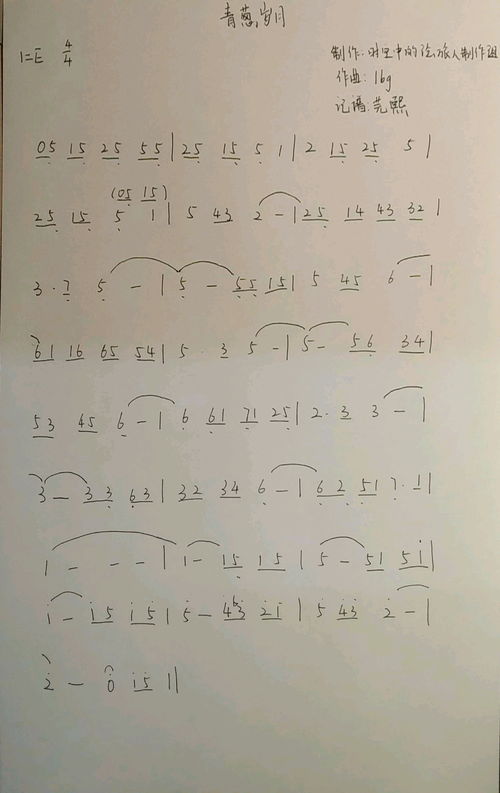 青葱岁月
1=E 4/4
制作:时里中的 旅人制作组
作曲: 16g
记谱:芫熙
05 15 25 55 | 25 15 5 1 | 2 15 25 5 |
(05 15)
25 15 5 1 | 5 43 2 - | 25 14 43 32 |
3 · 7 5 - | 5 - 55 15 | 5 45 6 - |
61 16 65 54 | 5 · 3 5 - | 5 - 56 34 |
53 45 6 - | 6 61 71 25 | 2 · 3 3 - |
3 - 33 63 | 32 34 6 - | 62 51 7 · 1 |
1 - - - | 1 - 15 15 | 5 - 51 51 |
1 - 15 15 | 5 - 43 21 | 5 43 2 - |
2 - 0 15 ||